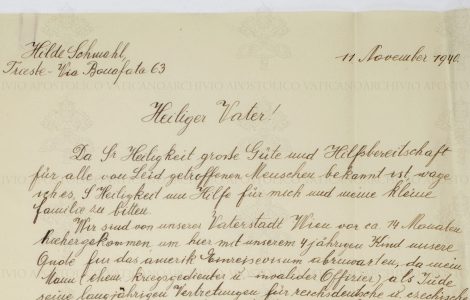 Hilde Schmahl,
Trieste - Via Bonafata 63
11 November 1940.
Heiliger Vater!
Da Sr Heiligkeit große Güte und Hilfsbereitschaft
für alle von Leid getroffenen Menschen bekannt ist, wage
ich es, S Heiligkeit um Hilfe für mich und meine kleine
Familie zu bitten.
Wir sind von unserer Vaterstadt Wien vor ca. 14 Monaten
hierhergekommen um hier mit unserem 4 jährigen Kind unsere
Quote für das amerik Einreisevisum abzuwarten, da mein
Mann (ehem. kriegsgedienter u invalider Offizier) als Jude
seine langjährigen Vertretungen für reichsdeutsche u